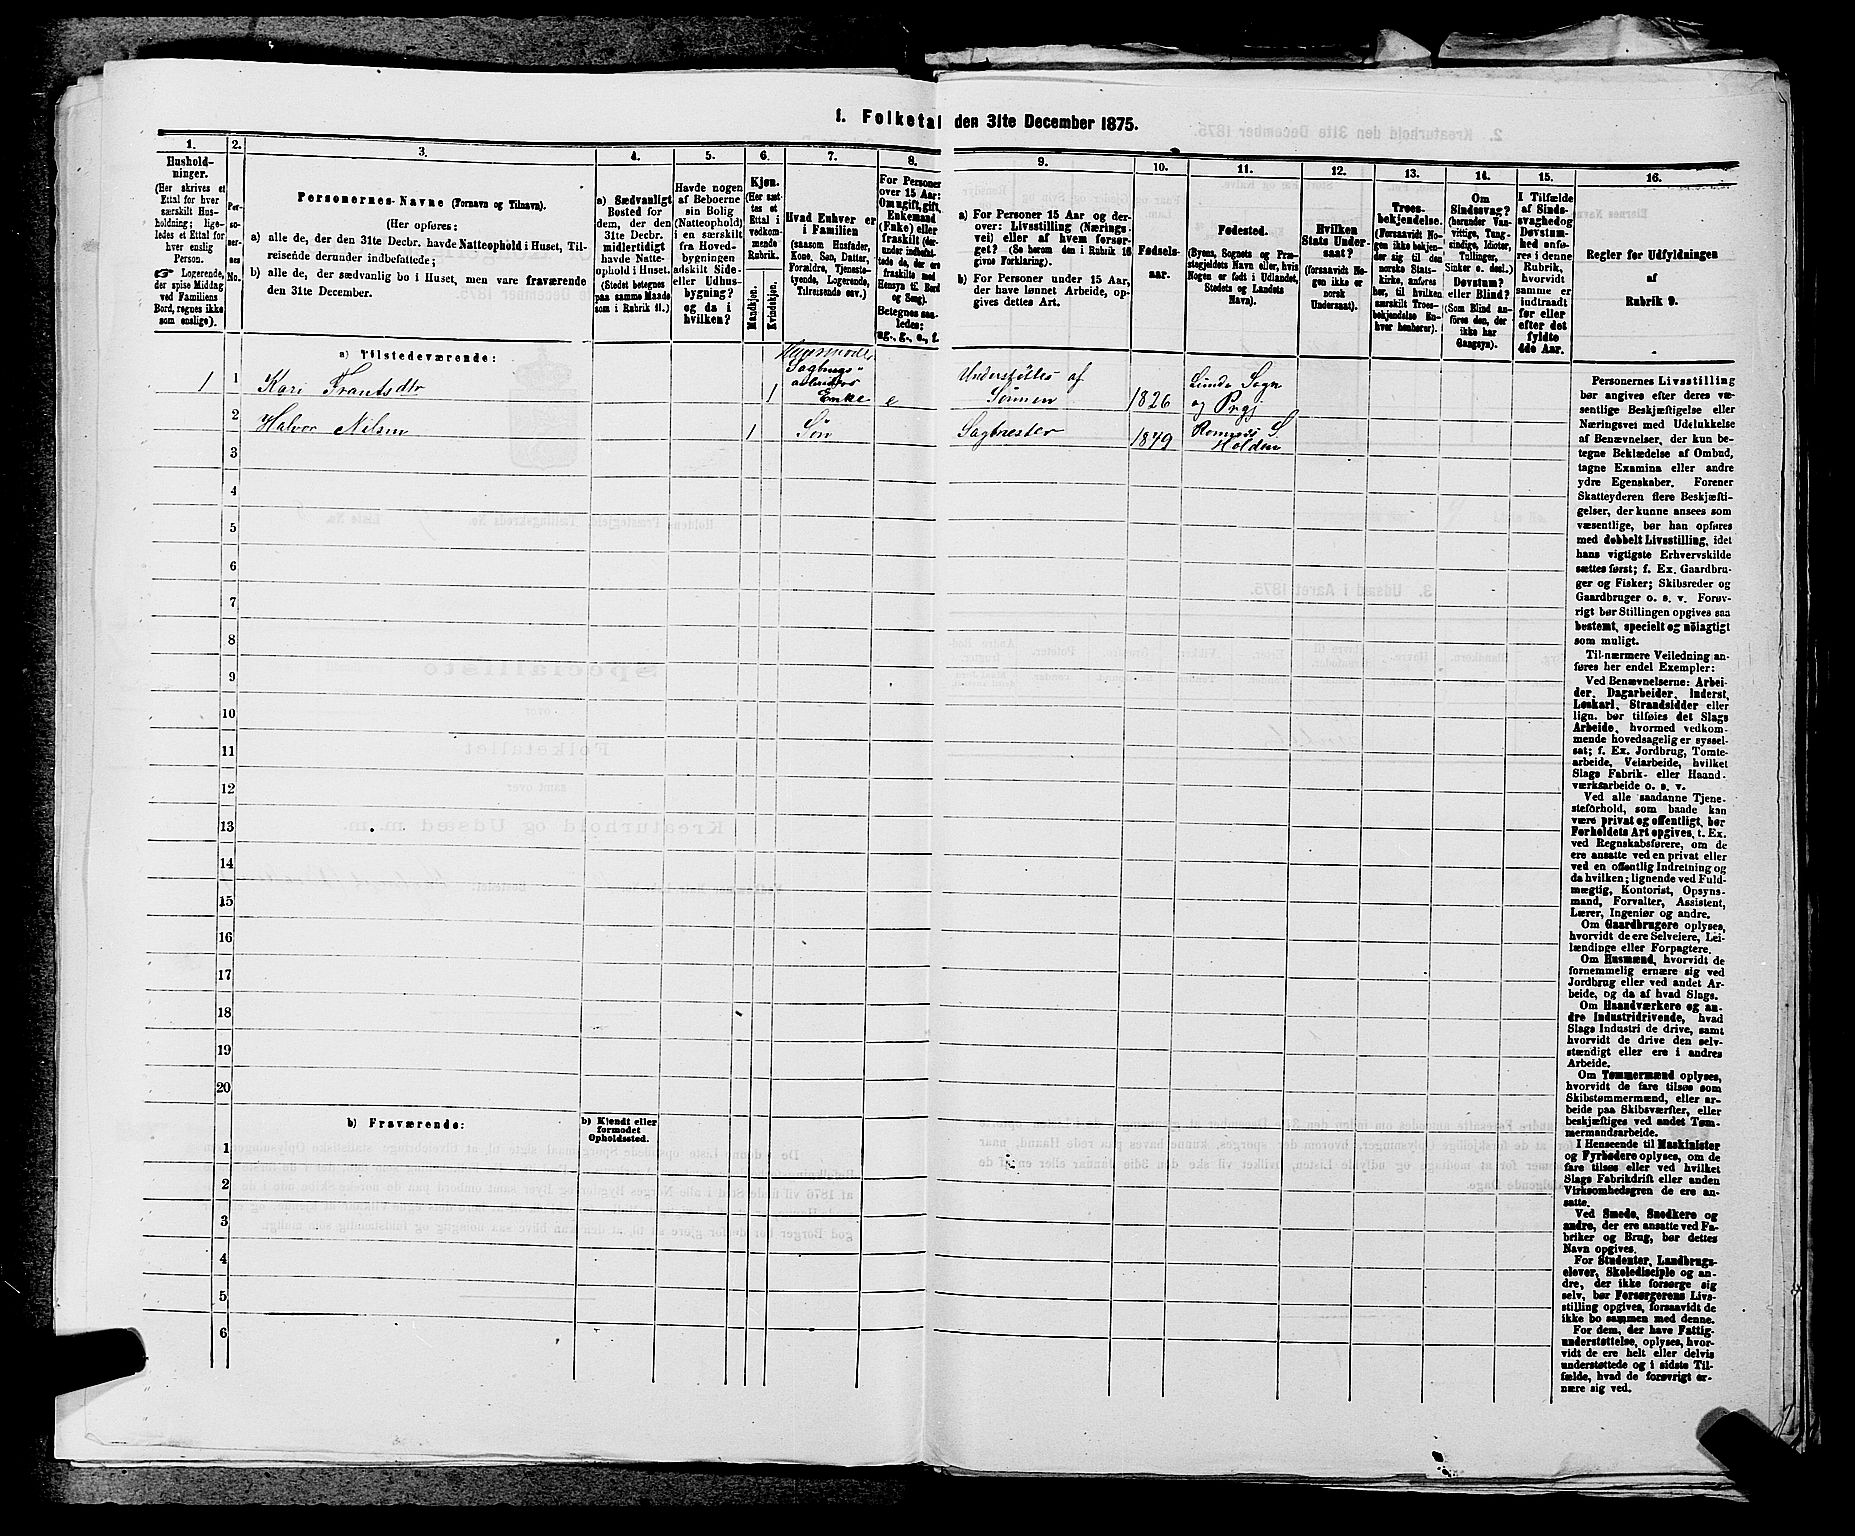 1. Folketal den 31te December 1875.
1.
Hushold-
ninger.
(Her skrives et
Ettal for hver
særskilt Hus-
holdning; lige-
ledes et Ettal for
hver enslig
Person.
☞ Logerende,
der spise Middag
ved Familiens
Bord, regnes ikke
som enslige).
2.
Per-
so-
ner-
nes
No.
3.
Personernes Navne (Fornavn og Tilnavn).
(Her opføres:
a) alle de, der den 31te Decbr. havde Natteophold i Huset, Til-
reisende derunder indbefattede;
b) alle de, der sædvanlig bo i Huset, men vare fraværende
den 31te December.
4.
a) Sædvanligt
Bosted for
dem, der den
31te Decbr.
midlertidigt
havde Natte-
ophold i Huset.
(Stedet betegnes
paa samme Maade
som i Rubrik 11.)
5.
Havde nogen
af Beboerne
sin Bolig
(Natteophold)
i en særskilt
fra Hoved-
bygningen
adskilt Side-
eller Udhus-
bygning?
og da i
hvilken?
6.
Kjøn.
(Her sæt-
tes et
Ettal i
vedkom-
mende
Rubrik.
Mandkjøn.
Kvindekjøn.
7.
Hvad Enhver er
i Familien
(saasom Husfader,
Kone, Søn, Datter,
Forældre, Tjeneste-
tyende, Logerende,
Tilreisende osv.)
8.
For Personer
over 15 Aar:
Om ugift, gift,
Enkemand
(Enke) eller
fraskilt (der-
under indbefat-
tede de, der ere
fraskilte med
Hensyn til Bord
og Seng).
Betegnes saa-
ledes:
ug., g., e., f.
9.
a) For Personer 15 Aar og der-
over: Livsstilling (Nærings-
vei) eller af hvem forsør-
get? (Se herom den i Rubrik 16
givne Forklaring).
b) For Personer under 15 Aar,
der have lønnet Arbeide, op-
gives dettes Art.
10.
Fødsels-
aar.
11.
Fødested.
(Byens, Sognets og Præ-
stegjeldets Navn eller, hvis
Nogen er født i Udlandet,
Stedets og Landets
Navn).
12.
Hvilken
Stats Under-
saat?
(forsaavidt No-
gen ikke er
norsk
Undersaat).
13.
Troes-
bekjendelse.
(Forsaavidt No-
gen ikke bekjen-
der sig til den
norske Stats-
kirke, anføres
her, til hvilken
særskilt Troes-
bekjendelse En-
hver henhører).
14.
Om
Sindssvag?
(herunder Van-
vittige, Tung-
sindige, Idioter,
Tullinger,
Sinker o. desl.)
Døvstum?
eller Blind?
(Som Blind an-
føres den, der
ikke har
Gangsyn).
15.
I Tilfælde
af Sinds-
svaghed og
Døvstum-
hed anfø-
res i denne
Rubrik,
hvorvidt
samme er
indtraadt
før eller
efter det
fyldte
4de Aar.
16.
Regler for Udfyldningen
af
Rubrik 9.
a) Tilstedeværende:
1 1 Kari Frantsdtr 1 Sagbrugs-
arbeiders
Enke e Understøttes af
Sønnen 1826 Lunde Sogn
og Prgj
2 Halvor Nilsen 1 Søn 1849 Romnæs S.
Holden
3
4
5
6
7
8
9
10
11
12
13
14
15
16
17
18
19
20
b) Fraværende:
b) Kjendt eller
formodet
Opholdssted.
1
2
3
4
5
6
Personernes Livsstilling
bør angives efter deres væ-
sentlige Beskjæftigelse eller
Næringsvei med Udelukkelse
af Benævnelser, der kun be-
tegne Beklædelse af Ombud,
tagne Examina eller andre
ydre Egenskaber. Forener
Skatteyderen flere Beskjæfti-
gelser, der kunne ansees som
væsentlige, bør han opføres
med dobbelt Livsstilling, idet
hans vigtigste Erhvervskilde
sættes først; f. Ex. Gaardbru-
ger og Fisker; Skibsreder og
Gaardbruger o. s. v. Forøv-
rigt bør Stillingen opgives saa
bestemt, specielt og nöiagtigt
som muligt.
Til nærmere Veiledning an-
føres her endel Exempler:
Ved Benævnelserne: Arbei-
der, Dagarbeider, Inderst,
Løskarl, Strandsidder eller
lign. bør tilføies det Slags
Arbeide, hvormed vedkom-
mende hovedsagelig er syssel-
sat; f. Ex. Jordbrug, Tomte-
arbeide, Veiarbeide, hvilket
Slags Fabrik- eller Haand-
værksarbeide o. s. v.
Ved alle saadanne Tjene-
steforhold, som baade kan
være privat og offentligt, bør
Forholdets Art opgives, t. Ex.
ved Regnskabsførere, om de
ere ansatte ved en privat eller
ved en offentlig Indretning og
da hvilken; lignende ved Fuld-
mægtig, Kontorist, Opsyns-
mand, Forvalter, Assistent,
Lærer, Ingeniør og andre.
Om Gaardbrugere oplyses,
hvorvidt de ere Selveiere, Lei-
lændinge eller Forpagtere.
Om Husmænd, hvorvidt de
fornemmelig ernære sig ved
Jordbrug eller ved andet Ar-
beide, og da af hvad Slags.
Om Haandværkere og an-
dre Industridrivende, hvad
Slags Industri de drive, samt
hvorvidt de drive den selv-
stændigt eller ere i andres
Arbeide.
Om Tømmermænd oplyses,
hvorvidt de fare tilsøs som
Skibstømmermænd, eller ar-
beide paa Skibsværfter, eller
beskjæftiges ved andet Tøm-
mermandsarbeide.
I Henseende til Maskinister
og Fyrbødere oplyses, om de
fare tilsøs eller ved hvilket
Slags Fabrikdrift eller anden
Virksomhedsgren de ere an-
satte.
Ved Smede, Snedkere og
andre, der ere ansatte ved Fa-
briker og Brug, bør dettes
Navn opgives.
For Studenter, Landbrugs-
elever, Skoledisciple og an-
dre, der ikke forsørge sig
selv, bør Forsørgerens Livs-
stilling opgives, forsaavidt de
ikke bo sammen med denne.
For dem, der have Fattig-
understøttelse, oplyses, hvor-
vidt de ere helt eller delvis
understøttede og i sidste Til-
fælde, hvad de forøvrigt er-
nære sig ved.